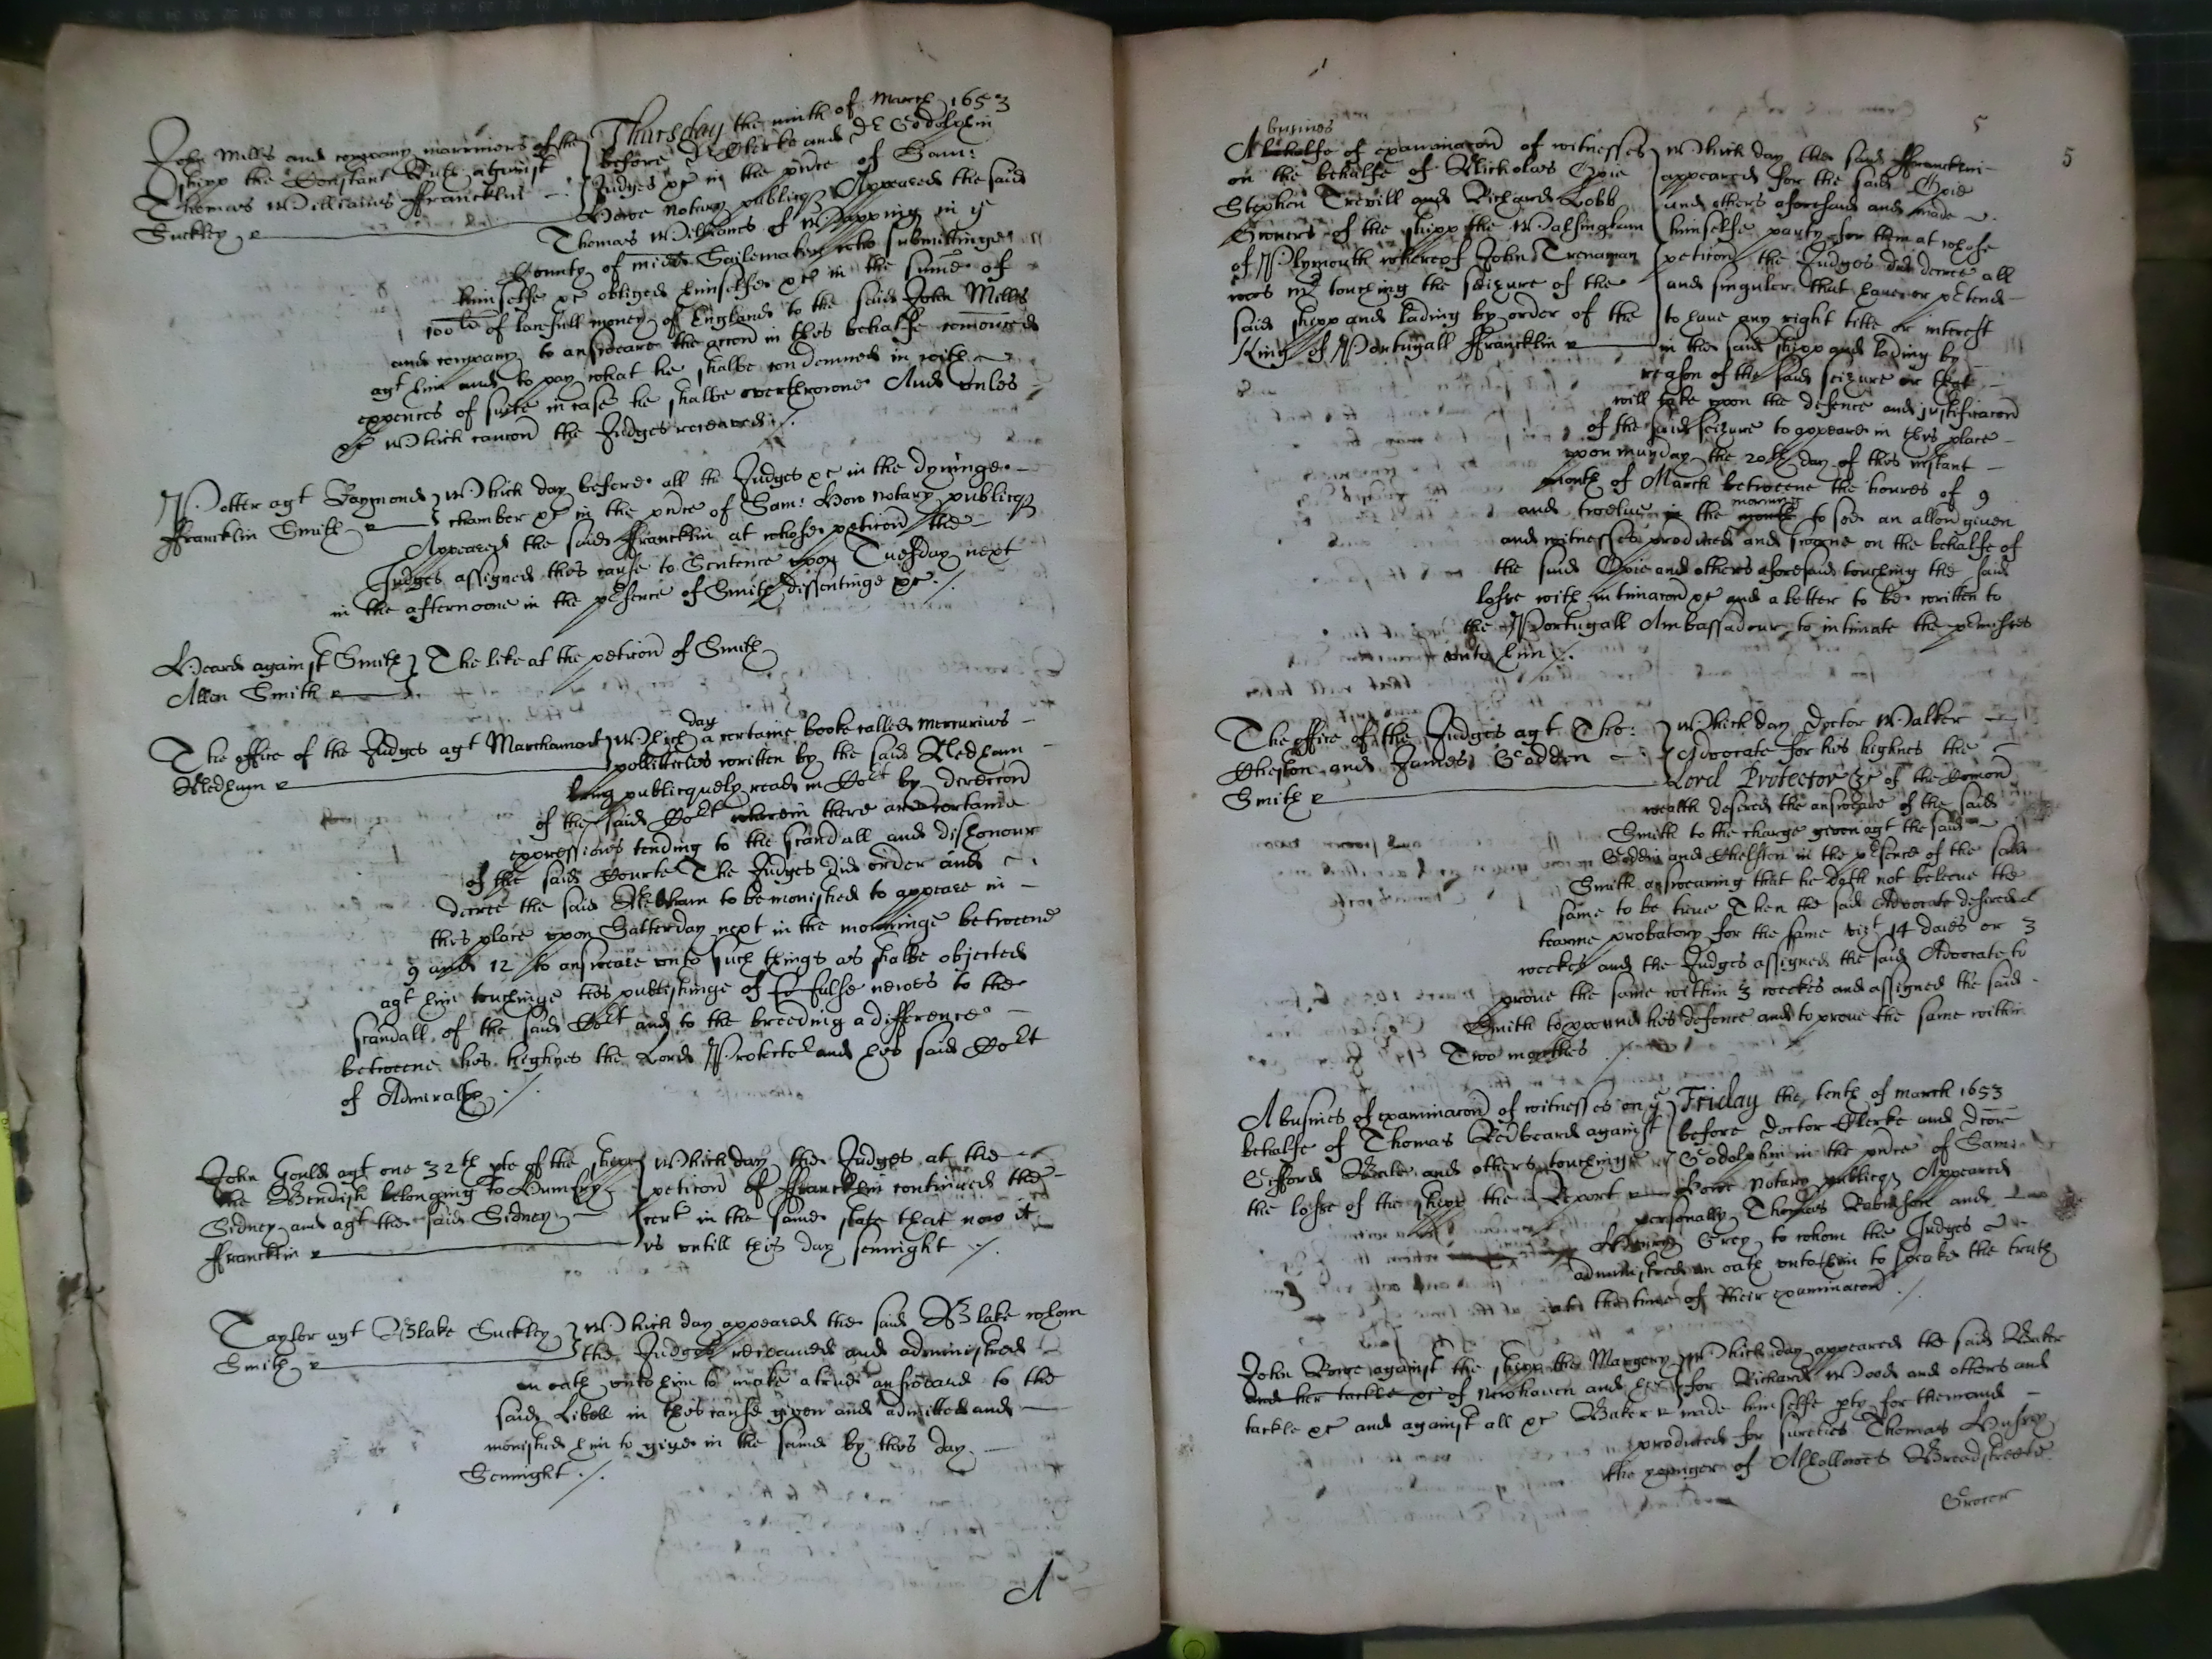 Thursday the ninth of March 1653
John Mills and company marriners of the
shipp the Constant Ruth against
Thomas Williams ffrancklin
Suckley
before Dr Clerke and Dr Godolphin
Judges &c in the pnce of Sam:
Howe notary publicq Appeared the said
Thomas Williams of Wapping in ye
County of Midd Sailemaker who submittinge
himselfe &c obliged himselfe &c in the summe of
100 li of lawfull money of England to the said John Mills
and company to answeare the accon in this behalfe comenced
agt him and to pay what he shalbe condemned in with
expences of suite in case he shalbe overthrowne And unles
&c Which caucon the Judges received ./.
Potter agt Raymond
ffrancklin Smith
Which day before all the Judges &c in the dyninge
chamber &c in the pnce of Sam: How notary publicq
Appeared the said ffrancklin at whose peticon the
Judges assigned this cause to Sentence upon Tuesday next
in the afternoone in the presence of Smith dissentinge &c ./
Heard against Smith
Allen Smith
The like at the peticon of Smith
The office of the Judges agt Marchamont
Nedham
day
Which a certaine booke called mercurius
polliticus written by the said Nedham
being publicquely read in Cort by direccon
of the said Cort wherein there are certaine
expressions tending to the scandall and dishonour
of the said Courte The Judges did order and
decree the said Nedham to be monished to appeare in
this place upon Satterday next in the morninge betweene
9 and 12 to answeare unto such things as shalbe objected
agt him touchinge his publishinge of false newes to the
scandall of the said Cort and to the breeding a difference
betweene his highnes the Lord Protector and his said Cort
of Admiralty ./
John Gould agt one 32th pte of the shipp
the Bendish belonging to Humfry
Sidney and agt the said Sidney
ffrancklin
Which day the Judges at the
peticon of ffrancklin continued the
cert in the same state that now it
is untill this day sennight ./.
Taylor agt Blake Suckley
Smith
Which day appeared the said Blake whom
the Judges received and administred
an oath unto him to make a true answeare to the
said Libell in this cause given and admitted and
monished him to give in the same by this day
Sennight ./.
A
5
5
busines
A behalfe of examinacon of witnesses
on the behalfe of Nicholas Opie
Stephen Trevill and Richard Lobb
Owners of the shipp the Walsingham
of Plymouth whereof John Trenaman
was mr touching the seizure of the
said shipp and lading by order of the
King of Portugall ffrancklin
Which day the said ffrancklin
appeared for the said Opie
and others aforesaid and made
himselfe party for them at whose
peticon the Judges did decree all
and singuler that have or pretend
to have any right title or interest
in the said shipp and lading by
reason of the said seizure or that
will take upon the defence and justificacon
of the said seizure to appeare in this place
upon munday the 20th day of this instant
month of March betweene the houres of 9
and twelve in the month morning to see an allon given
and witnesses produced and sworne on the behalfe of
the said Opie and others aforesaid touching the said
losse with intimacon &c and a letter to be written to
the Portugall Ambassadour to intimate the premisses
unto him ./.
The office of the Judges agt Tho:
Chelston and James Godden
Smith
Which day Doctor Walker
Advocate for his highnes the
Lord Protector &c of the Comon
wealth desired the answeare of the said
Smith to the charge given agt the said
Godden and Chelston in the presence of the said
Smith answearing that he doth not beleeve the
same to be true Then the said Advocate desired a
tearme probatory for the same vizt 14 daies or 3
weekes and the Judges assigned the said Advocate to
prove the same within 3 weekes and assigned the said
Smith to ppound his defence and to prove the same within
Two monthes ./.
A busines of examinacon of witnesses on ye
behalfe of Thomas Redbeard against
Gifford Bale and others touching
the losse of the shipp the Report
Friday the tenth of march 1653
before Doctor Clerke and Dcor
Godolphin in the pnce of Sam:
Howe notary publicq Appeared
personally Thomas Robinson and
Henry Grey to whom the Judges
administred an oath unto him to speake the truth
at the time of their examinacon ./.
John Rowe against the shipp the Margery
and her tackle &c of Newhaven and her
tackle &c and against all &c Baker
Which day appeared the said Baker
for Richard Wood and others and
made himselfe pty for them and
produced for sureties Thomas Hussey
the younger of Alhallowes Breadstreete
Grocer